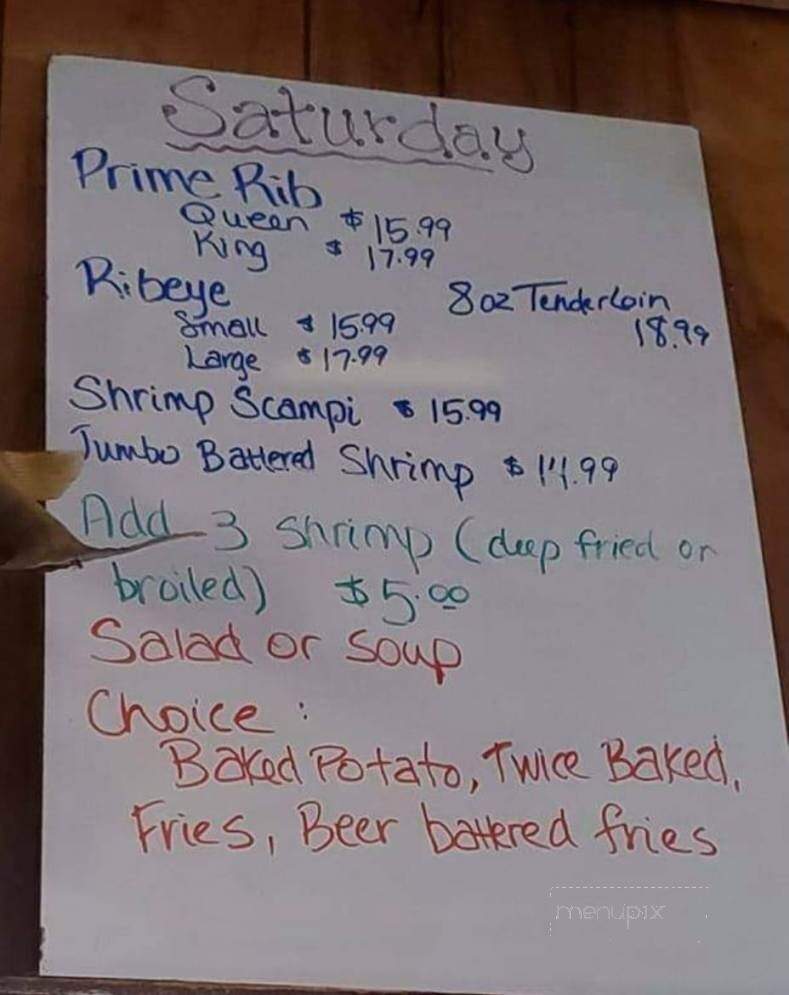 Saturday
Prime Rib
Queen $15.99
King $ 17.99
Ribeye
8oz Tenderloin
18.99
Small $ 15.99
Large $ 17.99
Shrimp Scampi $ 15.99
Jumbo Battered Shrimp $ 14.99
Add 3 Shrimp (deep fried or
broiled) $5.00
Salad or Soup
Choice :
Baked Potato, Twice Baked,
Fries, Beer battered fries
menupix